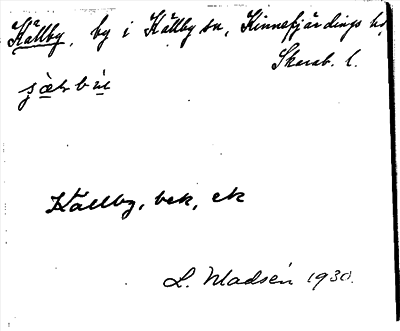 Källby, by i Källby sn, Kinnefjärdings hd,
Skarab. l.
Källby, bek, ek
L. Madsén 1930.